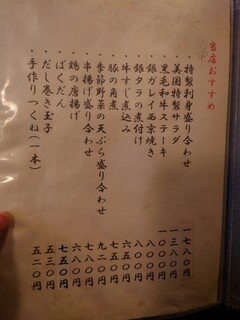 当店おすすめ
・特製刺身盛り合わせ 一七八〇円
・美園特製サラダ 一三八〇円
・黒毛和牛ステーキ 一〇〇〇円
・銀ガレイ西京焼き 八〇〇円
・銀タラの煮付け 八〇〇円
・牛すじ煮込み 六五〇円
・豚の角煮 七五〇円
・季節野菜の天ぷら盛り合わせ 九二〇円
・串揚げ盛り合わせ 七八〇円
・鶏の唐揚げ 六八〇円
・ばくだん 七五〇円
・だし巻き玉子 五三〇円
・手作りつくね(一本) 五二〇円